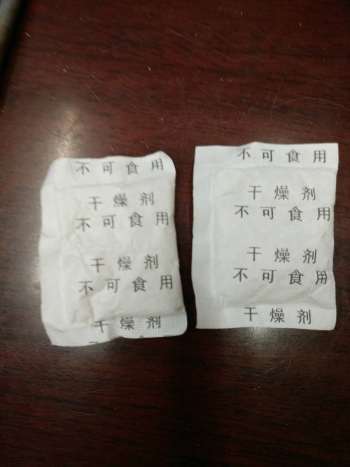 不可食用
干燥剂
不可食用
干燥剂
不可食用
干燥剂
不可食用
干燥剂
不可食用
干燥剂
不可食用
干燥剂